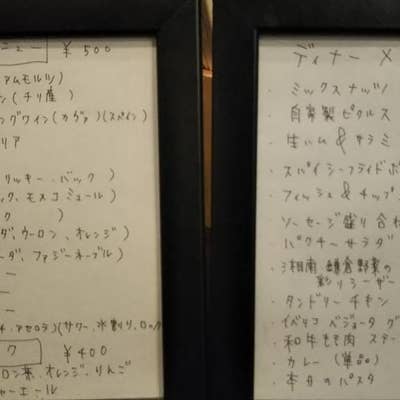 ニュー ¥500
アムモルツ)
ン(チリ産)
ングワイン(カヴァ)(スペイン)
リア
リッキー、バック)
ック、モスコミュール)
ク )
ダ、ウーロン、オレンジ)
ーダ、ファジーネーブル)
ー
ー
、アセロラ)(サワー、水割り、ロック
ク ¥400
ロン茶、オレンジ、りんご
ャーエール
ディナー メ
・ミックスナッツ
・自家製ピクルス
・生ハム&サラミ
・スパイシーフライドポ
・フィッシュ&チップ
・ソーセージ盛り合わ
・パクチーサラダ
・湘南鎌倉野菜の
彩りシーザー
・タンドリーチキン
・イベリコベジョータグ
・和牛もも肉ステー
・カレー(単品)
・本日のパスタ